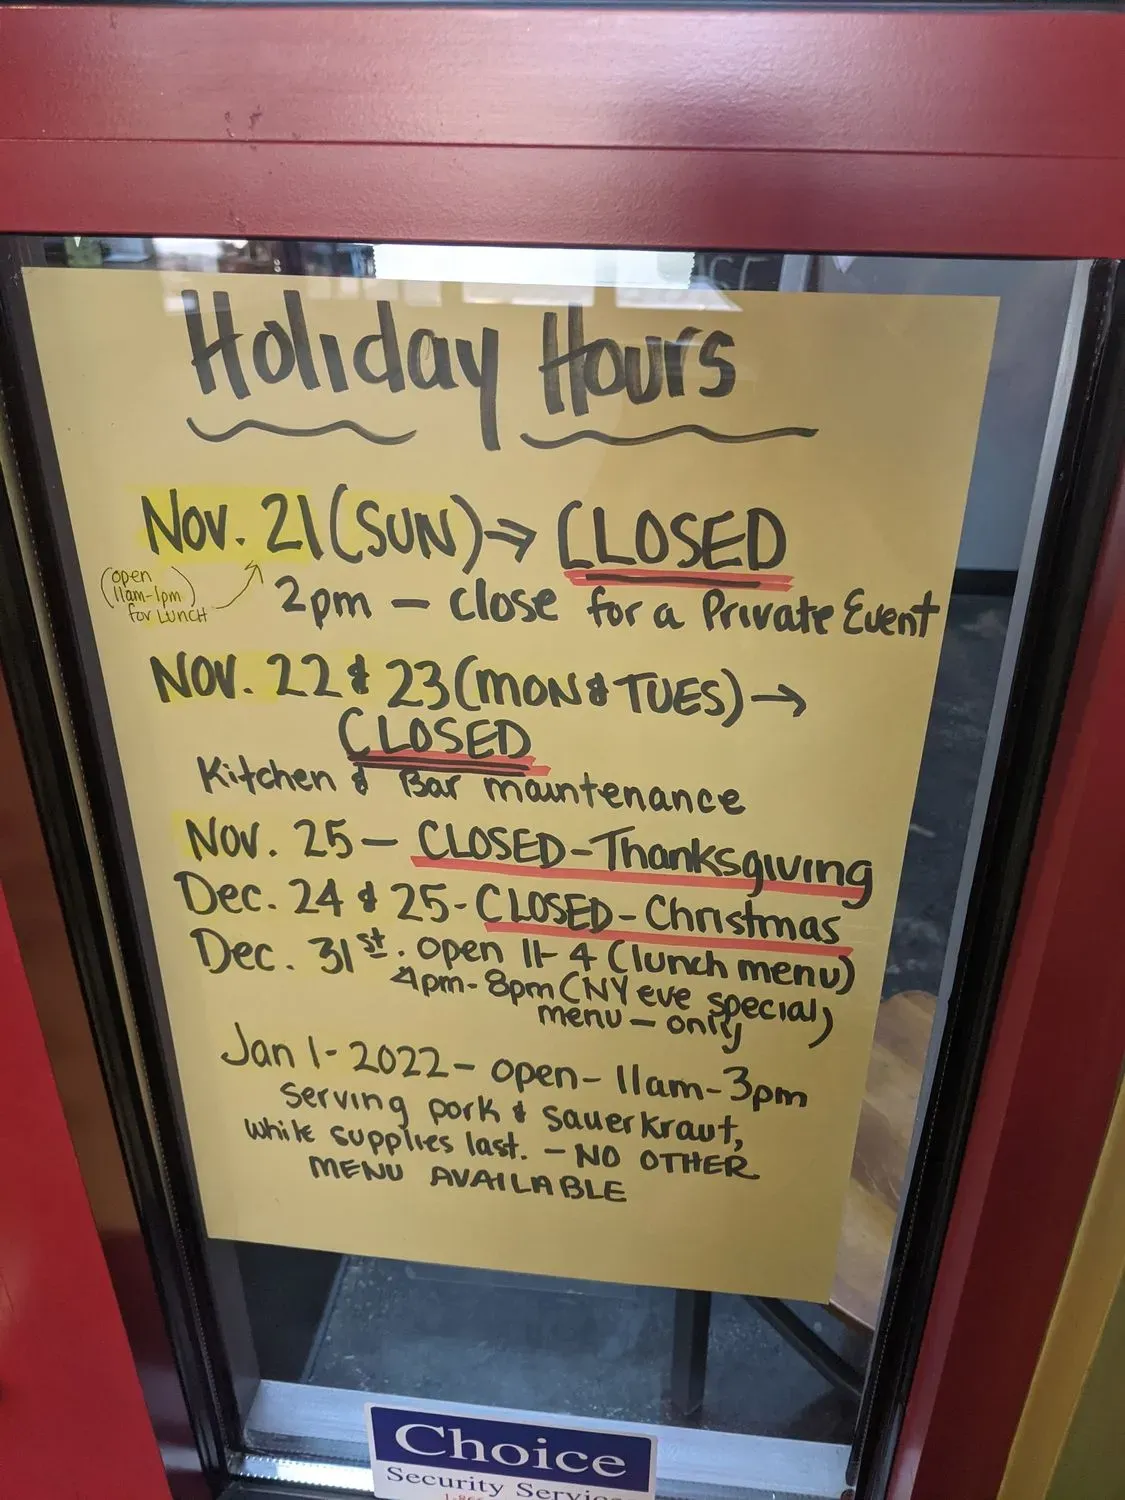 Holiday Hours
Nov. 21 (SUN) → CLOSED
(open
11am-1pm)
for LUNCH
2pm – close for a Private Event
Nov. 22 & 23 (MON & TUES) →
CLOSED
Kitchen & Bar maintenance
Nov. 25 – CLOSED – Thanksgiving
Dec. 24 & 25 - CLOSED - Christmas
Dec. 31st. open 11-4 (lunch menu)
4pm-8pm (NY eve special
menu – only)
Jan 1-2022 – open – 11am-3pm
serving pork & sauerkraut,
while supplies last. – NO OTHER
MENU AVAILABLE
Choice
Security Service